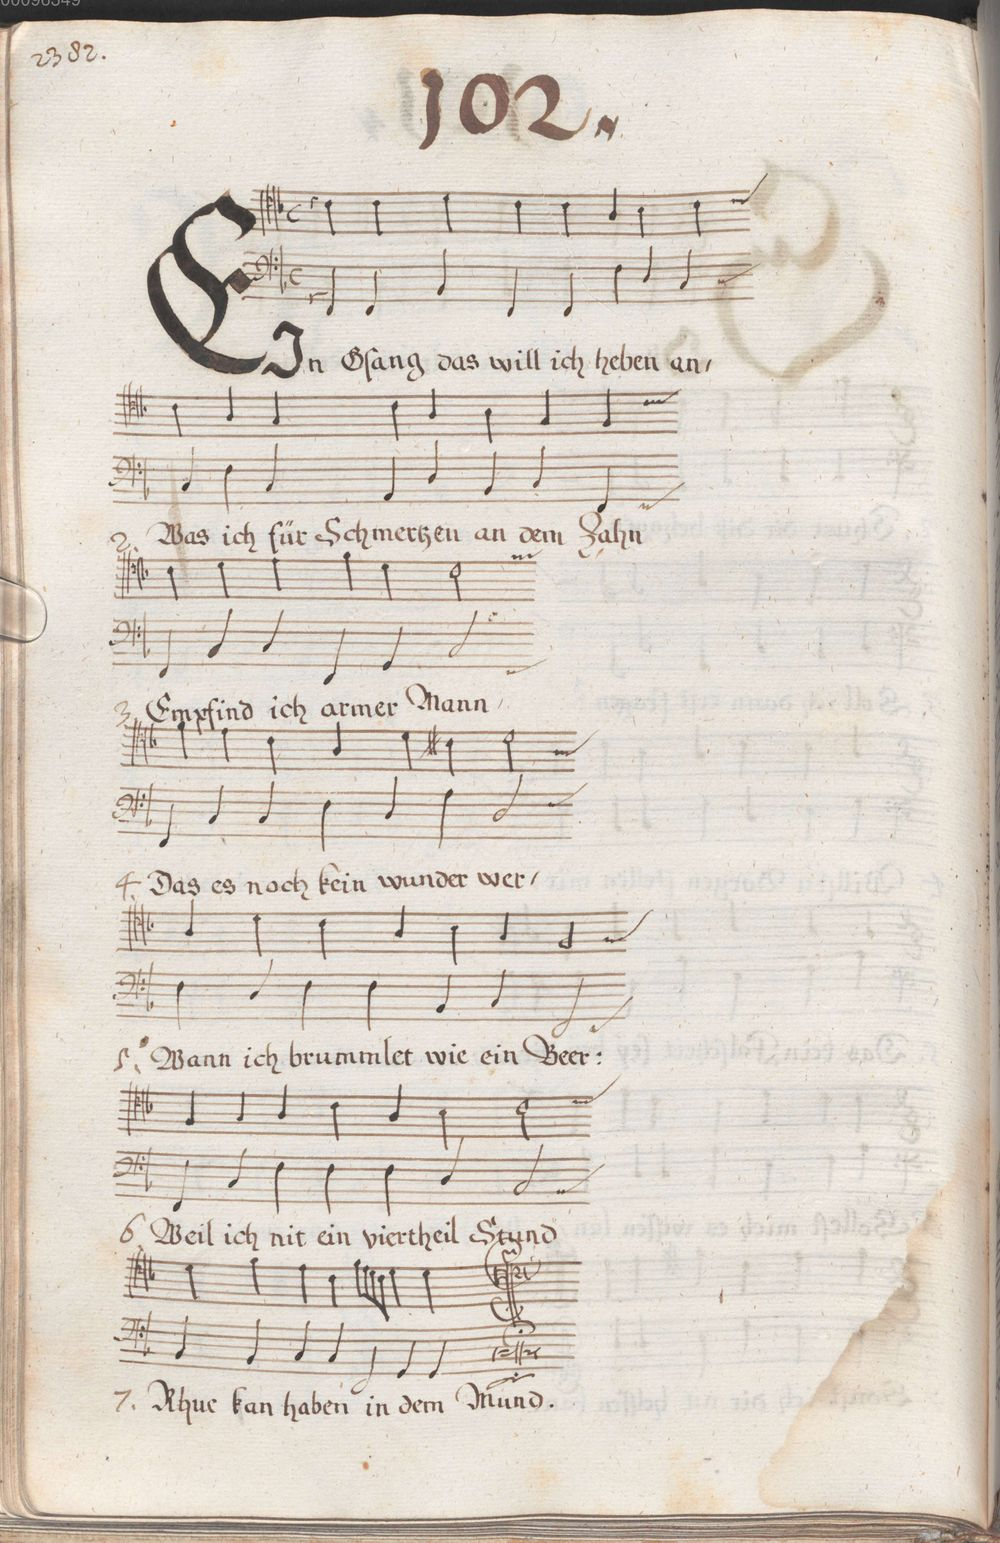 00098349
2382.
102.
EIn Gsang das will ich heben an,
2. Was ich für Schmertzen an dem Zahn
3. Empfind ich armer Mann,
4. Das es noch kein wunder wer,
5. Wann ich brummlet wie ein Beer:
6. Weil ich nit ein viertheil Stund
7. Rhue kan haben in dem Mund.